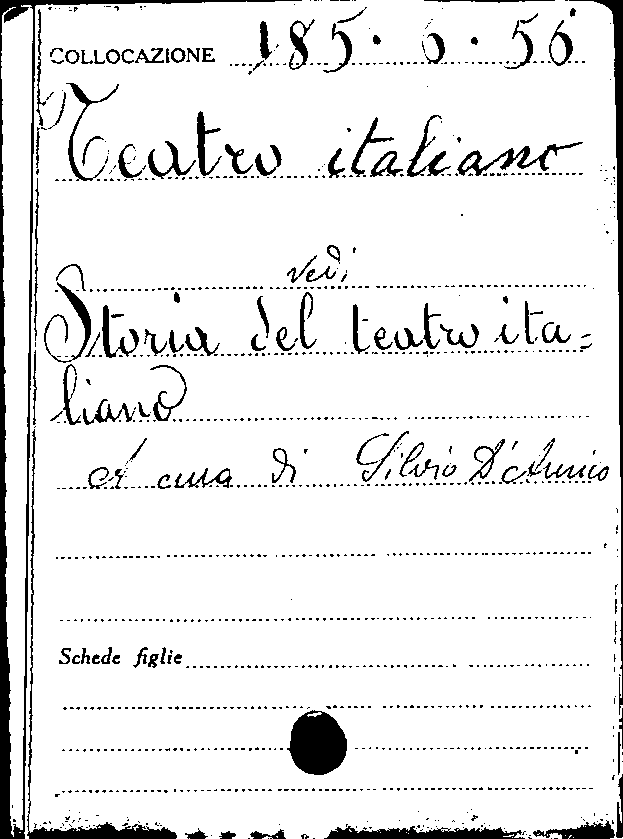 COLLOCAZIONE 185. 6. 56
Teatro italiano
vedi
Storia del teatro ita=
liano
A cura di Silvio D'Amico
Schede figlie